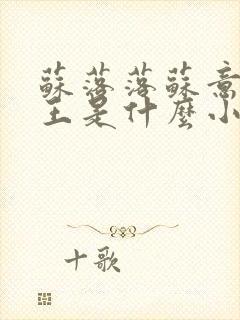 蘇落落蘇意
王是什麼小
十歌